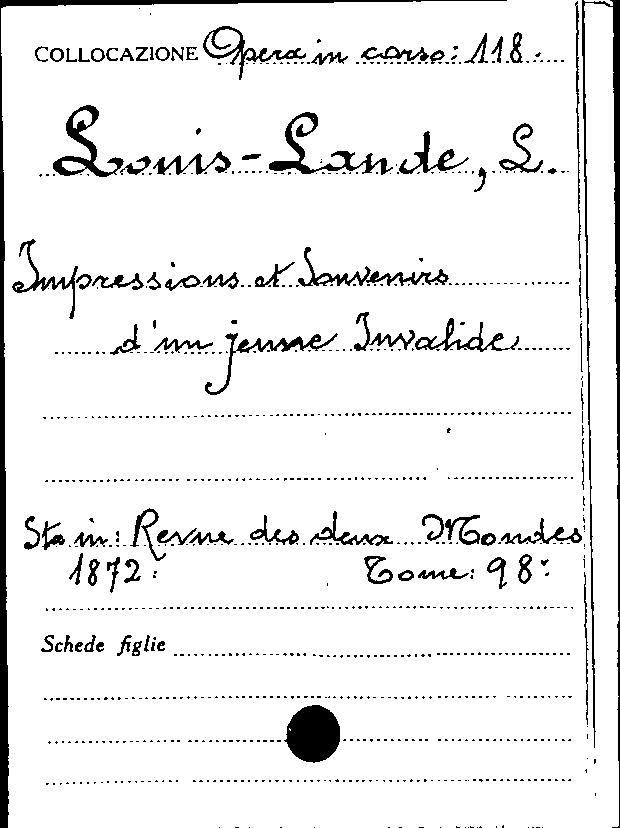 COLLOCAZIONE Opera in corso: 118.
Louis-Lande, L.
Impressions et Souvenirs
d'un jeune Invalide
Sta in: Revue des deux Mondes
1872. Tome: 98°.
Schede figlie